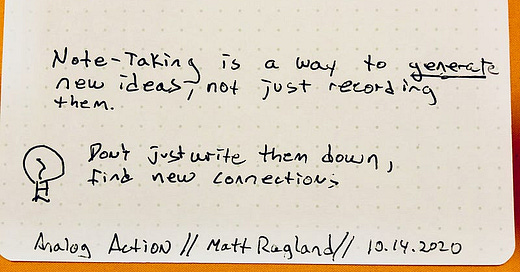 Note-Taking is a way to generate
new ideas, not just recording
them.
Don't just write them down,
find new connections
Analog Action // Matt Ragland // 10.14.2020